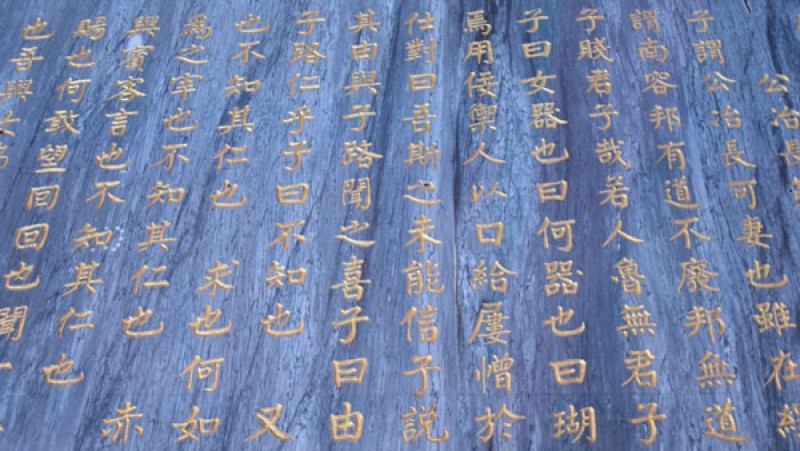 公冶長
子謂公冶長可妻也雖在
謂南容邦有道不廢邦無道
子賤君子哉若人魯無君子
子曰女器也曰何器也曰瑚
焉用佞禦人以口給屢憎於
仕對曰吾斯之未能信子說
其由與子路聞之喜子曰由
子路仁乎子曰不知也又
也不知其仁也 求也何如
爲之宰也不知其仁也 赤
與賓客言也不知其仁也
賜也何敢望回回也聞
也吾與